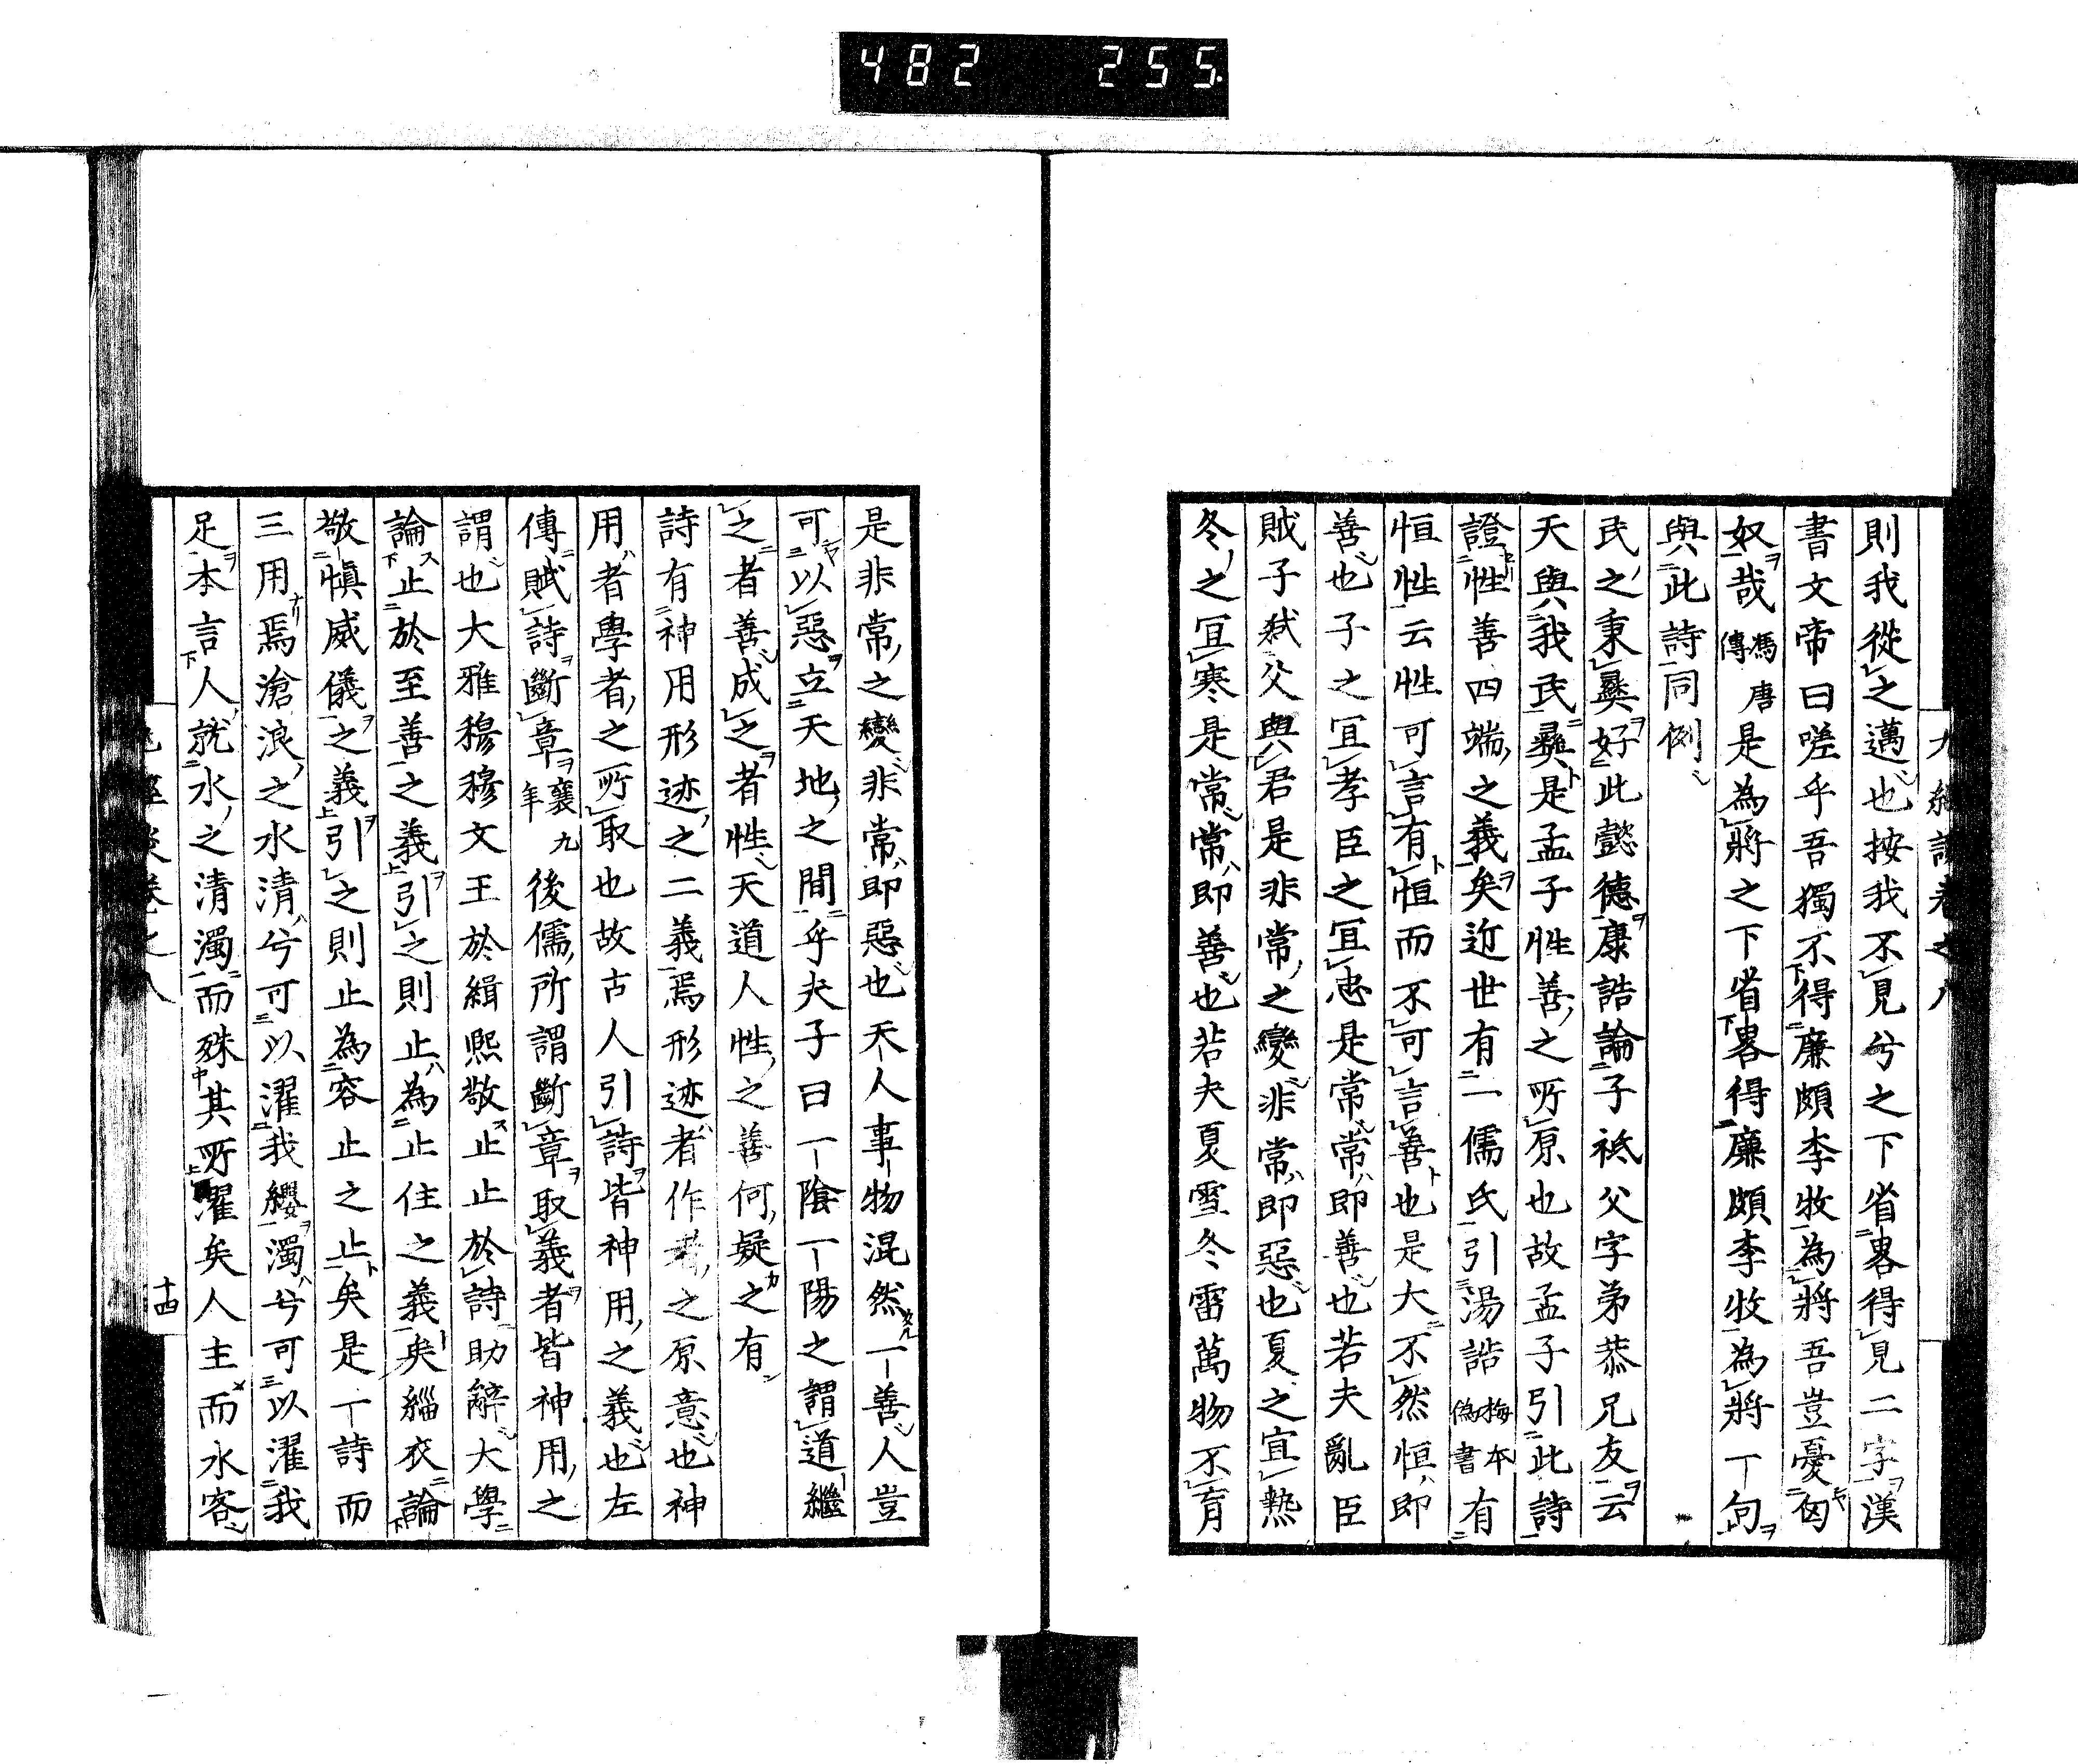 482 255
則我從之邁也按我不見兮之下省畧得見二字漢
書文帝曰嗟乎吾獨不得廉頗李牧為將吾豈憂匈
奴哉馮唐傳是為將之下省畧得廉頗李牧為將丁句
與此詩同例
民之秉彝好此懿德康誥論子祗父字弟恭兄友云
天與我民彝是孟子性善之所原也故孟子引此詩
證性善四端之義矣近世有一儒氏引湯誥梅本偽書有
恒性云性可言有恒而不可言善也是大不然恒即
善也子之宜孝臣之宜忠是常常即善也若夫亂臣
賊子弒父與君是非常之變非常即惡也夏之宜熱
冬之宜寒是常常即善也若夫夏雪冬雷萬物不育
是非常之變非常即惡也天人事物混然一善人豈
可以惡立天地之間乎夫子曰一陰一陽之謂道繼
之者善成之者性天道人性之善何疑之有
詩有神用形迹之二義焉形迹者作者之原意也神
用者學者之所取也故古人引詩皆神用之義也左
傳賦詩斷章襄九年後儒所謂斷章取義者皆神用之
謂也大雅穆穆文王於緝熙敬止止於詩助辭大學
論止於至善之義引之則止為止住之義矣緇衣論
敬慎威儀之義引之則止為容止之止矣是丁詩而
三用焉滄浪之水清兮可以濯我纓濁兮可以濯我
足本言人就水之清濁而殊其所濯矣人主而水客
十四